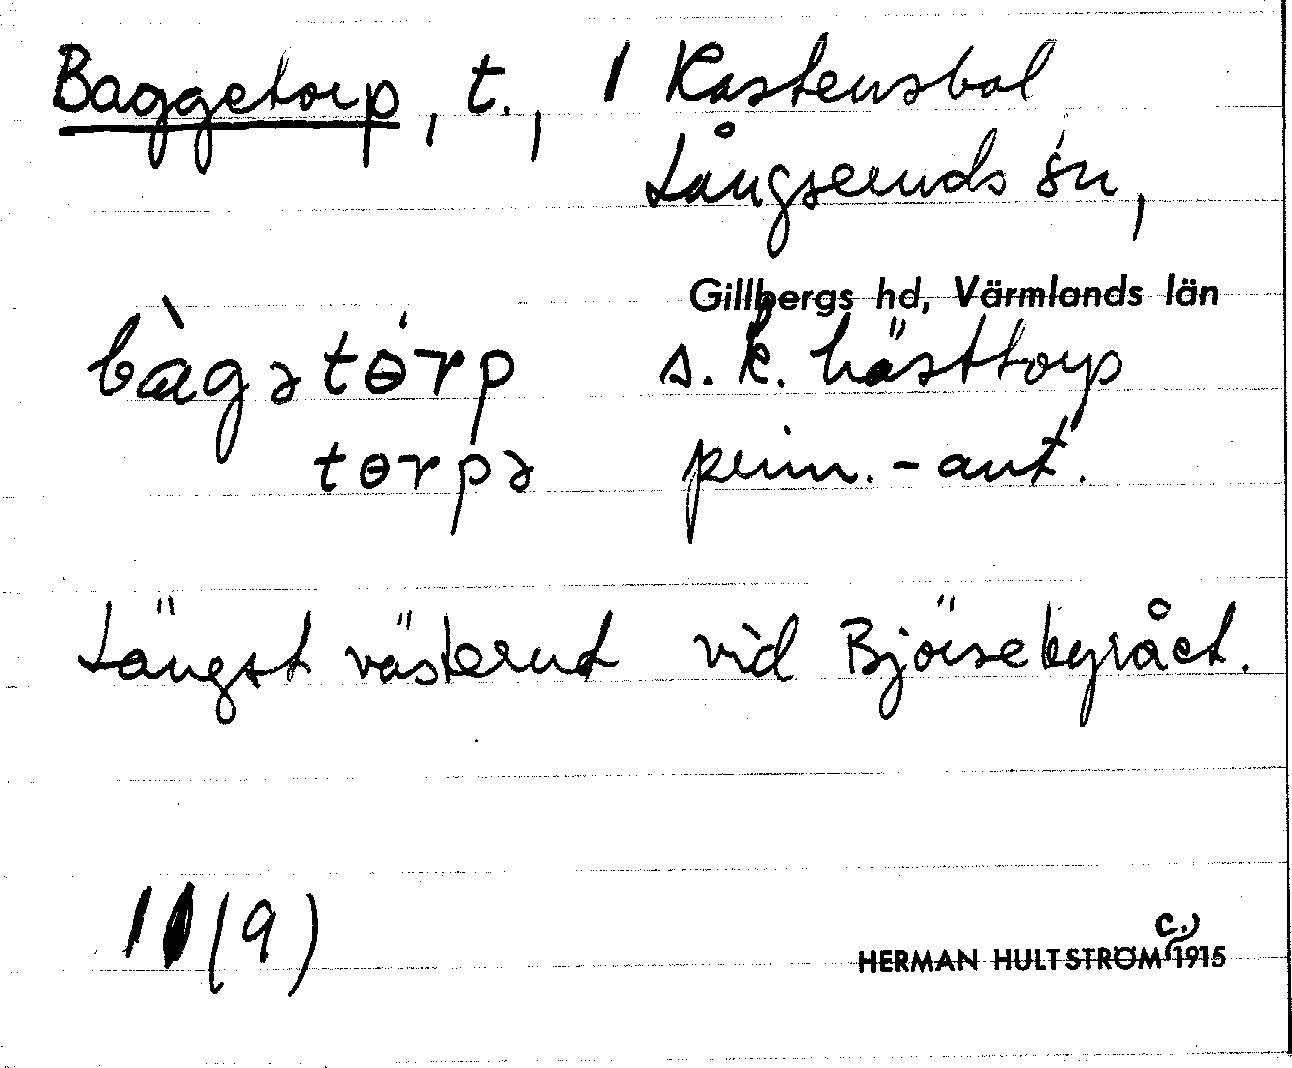 Baggetorp, t., 1 Kastensbol
Långseruds sn,
Gillbergs hd, Värmlands län
bàgətɵ́rp s. k. hästtorp
tɵrpə pinn.-ant.
Längst västerut vid Bjöisebyrået.
11 (9)
HERMAN HULTSTRÖM c. 1915